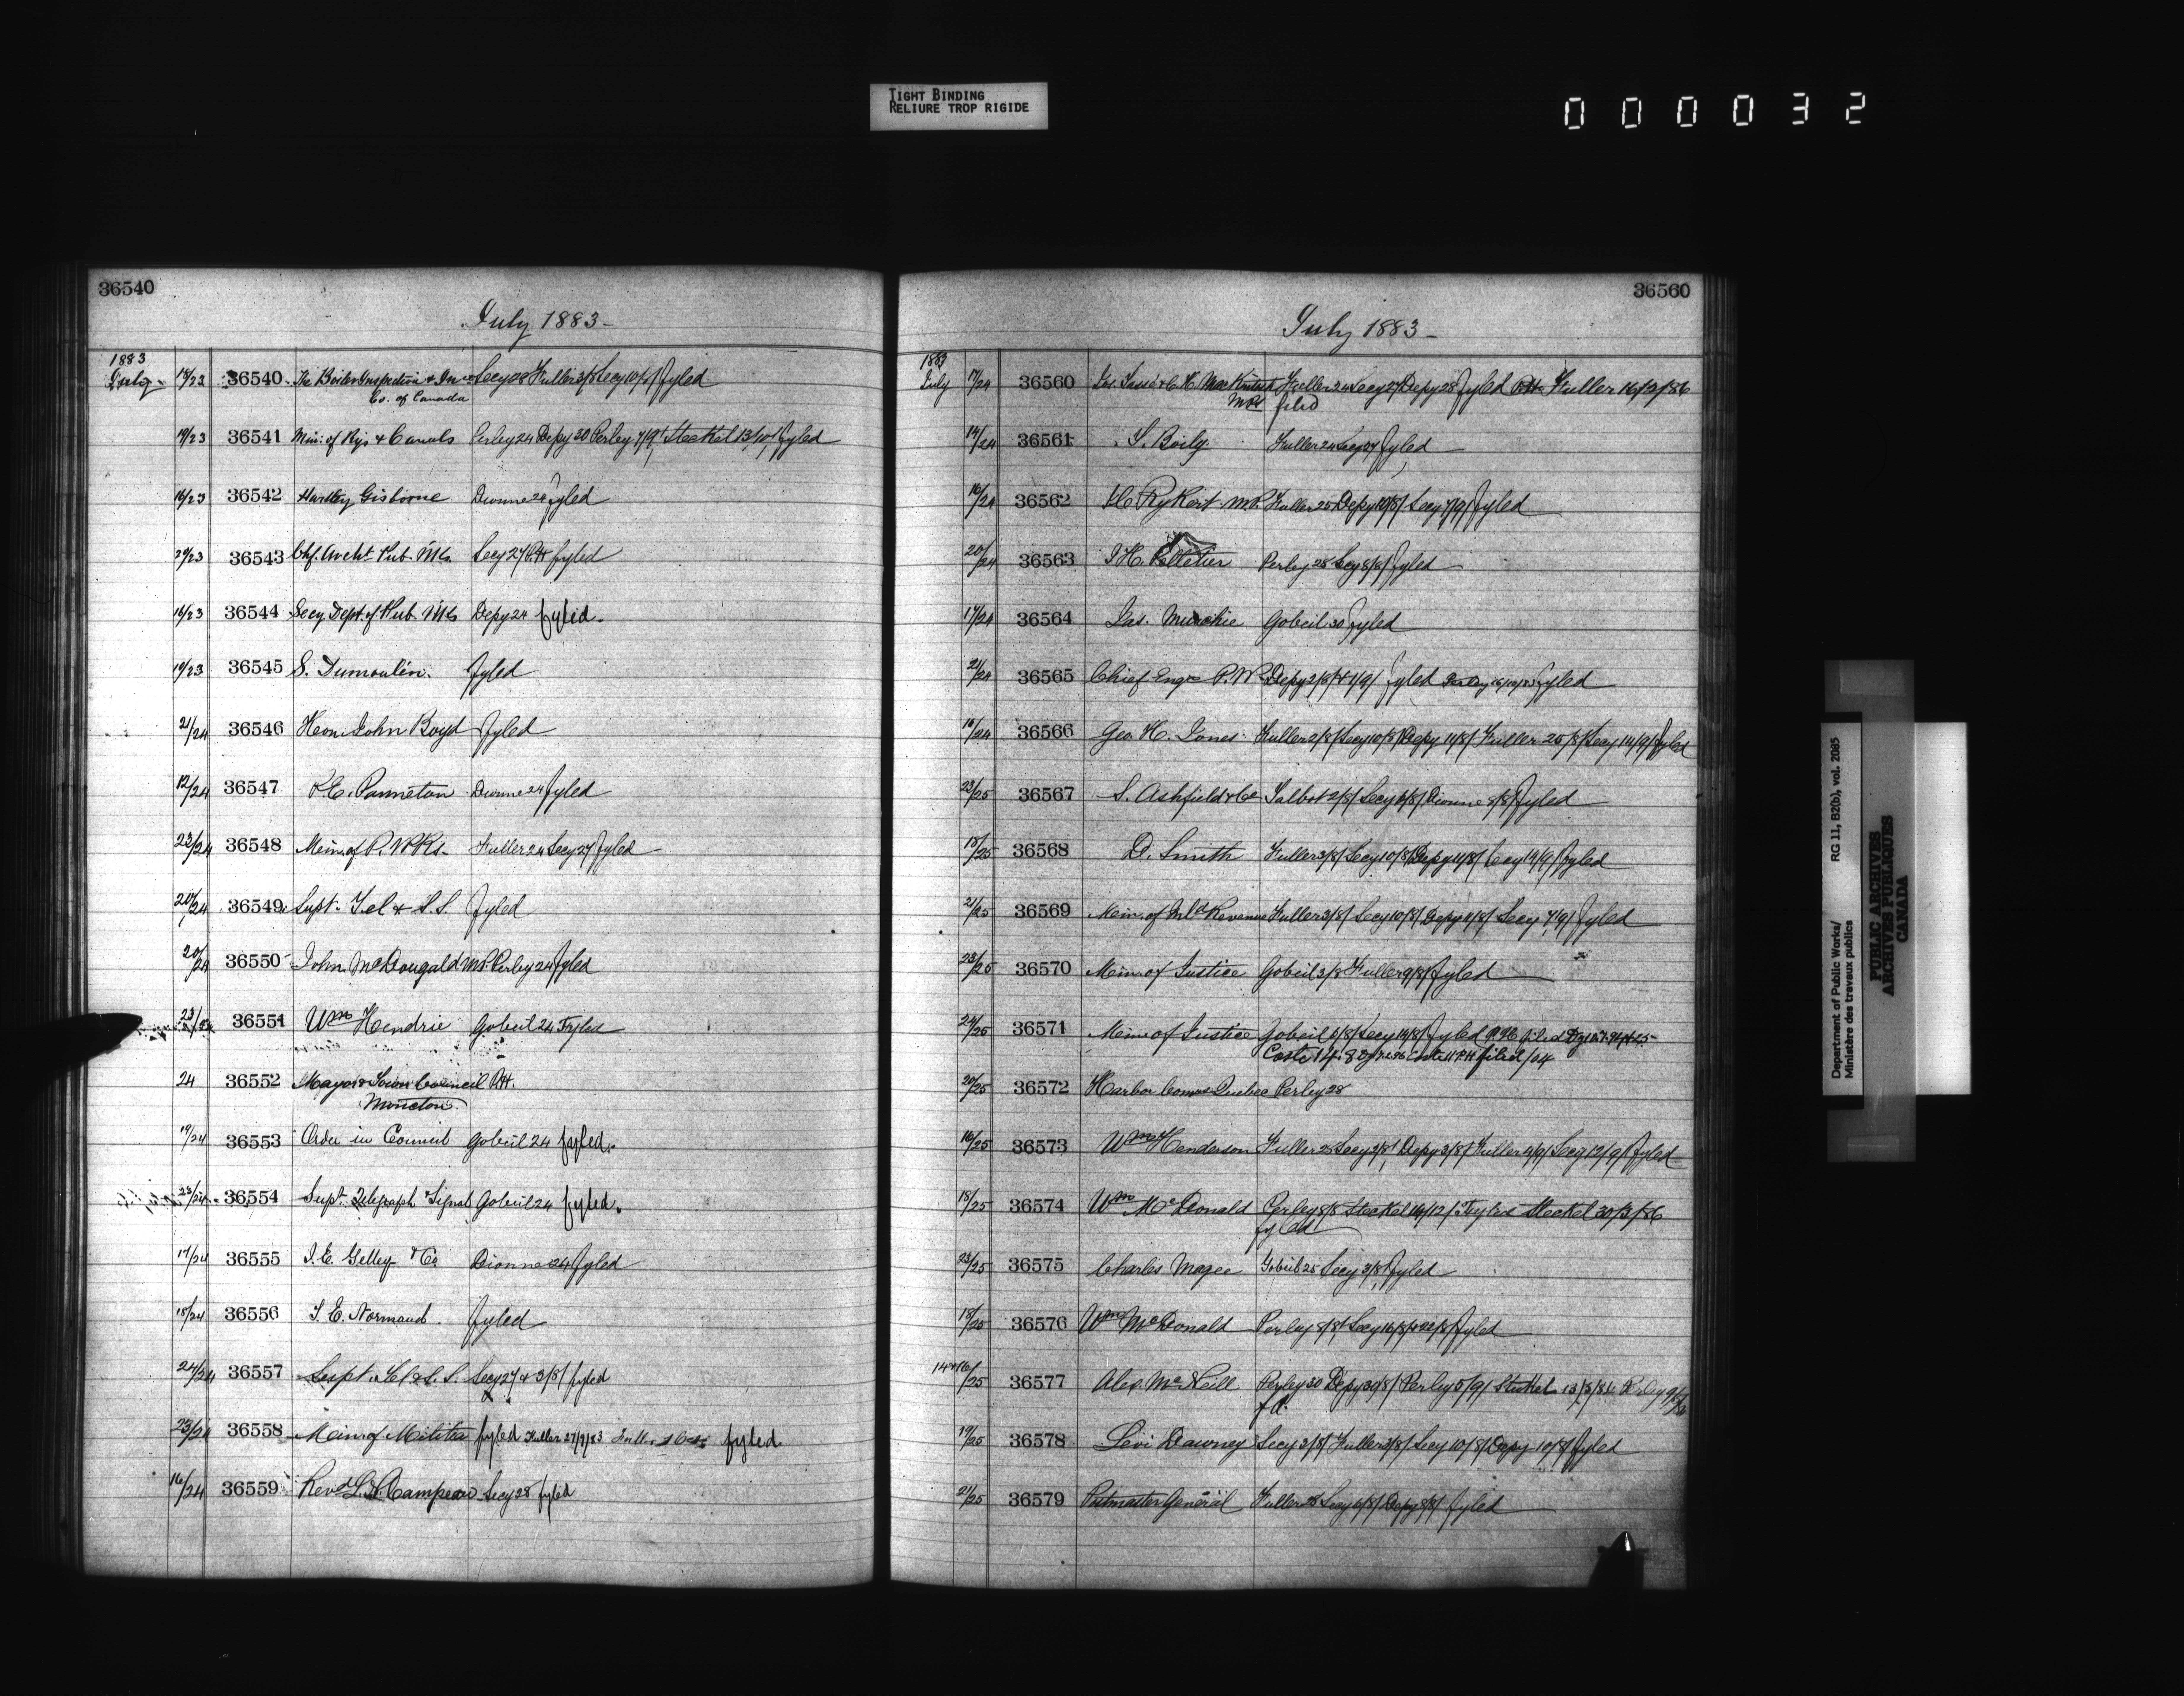 TIGHT BINDING
RELIURE TROP RIGIDE
000032
36540
July 1883-
1883
July - 18/23 36540 The Boiler Inspection & In Secy 28 Fuller 3/8/ Secy 10/8/ fyled
Co. of Canada
19/23 36541 Min. of Rys & Canals Perley 24 Depy 30 Perley 7/9/ Steckel 13/10/ fyled
16/23 36542 Hartley Gisborne Dionne 24 fyled
20/23 36543 Chf. Archt Pub. Wks Secy 27 fyled
16/23 36544 Secy Dept. of Pub. Wks Depy 24 fyled.
19/23 36545 S. Dumoulin. fyled
21/24 36546 Hon. John Boyd fyled
12/24 36547 P.E. Panneton Dionne 24 fyled
23/24 36548 Mem. of P. Fuller 24 Secy 27 fyled
20/24 36549 Supt. Tel & S.S. fyled
20/24 36550 John McDougald MP. Perley 24 fyled
36551 Wm Hendrie Gobeil 24 Fyled
24 36552 Mayor & Town Council
Moncton
19/24 36553 Order in Council Gobeil 24 fyled.
23/24 36554 Supt. Telegraph & Signal Gobeil 24 fyled.
17/24 36555 J.E. Gelley & Co Dionne 24 fyled
18/24 36556 T.E. Normand. fyled
24/24 36557 Supt. Tel & S.S. Secy 27 & 3/8/ fyled
23/24 36558 Min. of Militia fyled Fuller 27/9/83 fyled.
16/24 36559 Revd L.N. Campeau Secy 28 fyled
36560
July 1883-
1883
July 17/24 36560 Jos. Tassé & C.H. MacKintosh Fuller 24 Secy 27 Depy 28 fyled Fuller 16/2/86
MPs filed
14/24 36561 S. Boily. Fuller 24 Secy 27 fyled
16/24 36562 Rykert MP. Fuller 25 Depy 10/8/ Secy 7/9/ fyled
20/24 36563 J H. Pelletier Perley 28 Secy 8/8/ fyled
17/24 36564 Jas. Murchie Gobeil 30 fyled
21/24 36565 Chief Engr P.W. Depy 2/8/ & 1/9/ fyled fyled
18/24 36566 Geo H. Jones. Fuller 2/8/ Secy 10/8/ Depy 11/8/ Fuller 25/8/ Secy 14/9/ fyled
23/25 36567 S. Ashfield & Co Talbot 2/8/ Secy 6/8/ Dionne 8/8/ fyled
18/25 36568 D. Smith Fuller 3/8/ Secy 10/8/ Depy 11/8/ Secy 14/9/ fyled
21/25 36569 Min. of Inld Revenue Fuller 3/8/ Secy 10/8/ Depy 11/8/ Secy 7/9/ fyled
23/25 36570 Min. of Justice Gobeil 3/8 Fuller 9/8/ fyled
24/25 36571 Min of Justice Gobeil 6/8/ Secy 14/8/ fyled filed
Coste filed
20/25 36572 Harbor Comrs Quebec Perley 28
16/25 36573 Wm Henderson Fuller 28 Secy 2/8/ Depy 3/8/ Fuller 4/9/ Secy 12/9/ fyled
18/25 36574 Wm McDonald Perley 8/8 Steckel 14/12/ Fyled Steckel 30/3/86
fyled
23/25 36575 Charles Magee Gobeil 25 Secy 3/8/ fyled
18/25 36576 Wm McDonald Perley 8/8/ Secy 16/8/ & 22/8/ fyled
14 & 16/25 36577 Alex. McNeill Perley 30 Depy 30/8/ Perley 5/9/ Steckel 13/3/86 Perley
fd.
19/25 36578 Levi Dawney Secy 3/8/ Fuller 3/8/ Secy 10/8/ Depy 10/8/ fyled
21/25 36579 Postmaster General Fuller 28 Secy 6/8/ Depy 8/8/ fyled
Department of Public Works/ RG 11, B2(b), vol. 2085
Ministère des travaux publics
PUBLIC ARCHIVES
ARCHIVES PUBLIQUES
CANADA